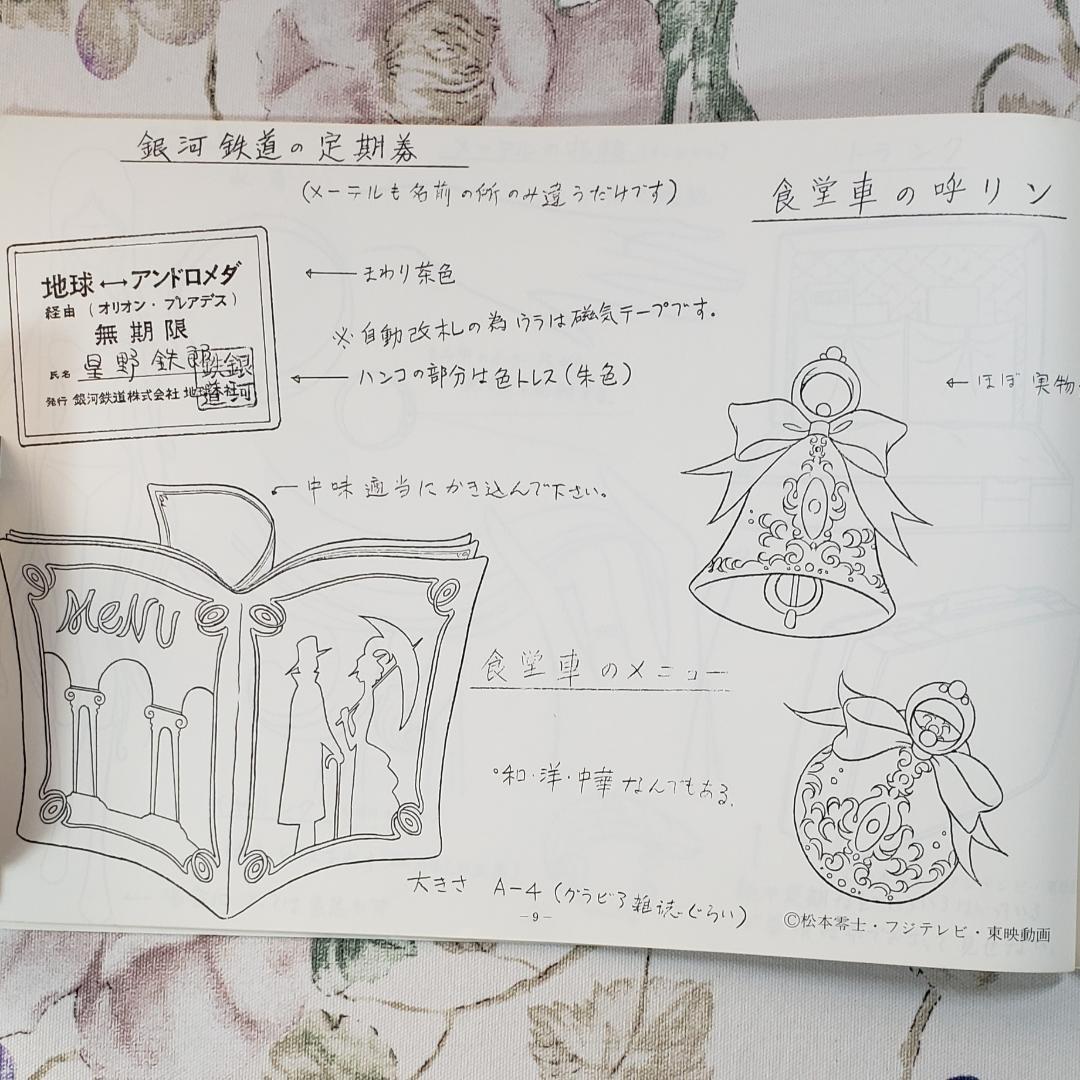 銀河鉄道の定期券
(メーテルも名前の所のみ違うだけです)
地球↔アンドロメダ
経由(オリオン・プレアデス)
無期限
氏名 星野 鉄郎
発行 銀河鉄道株式会社 地球本社
銀河鉄道
←まわり茶色
※自動改札の為ウラは磁気テープです.
←ハンコの部分は色トレス(朱色)
食堂車の呼リン
←ほぼ実物
中味適当にかき込んで下さい。
MeNU
食堂車のメニュー
°和・洋・中華なんでもある.
大きさ A-4 (グラビア雑誌ぐらい)
-9-
©松本零士・フジテレビ・東映動画